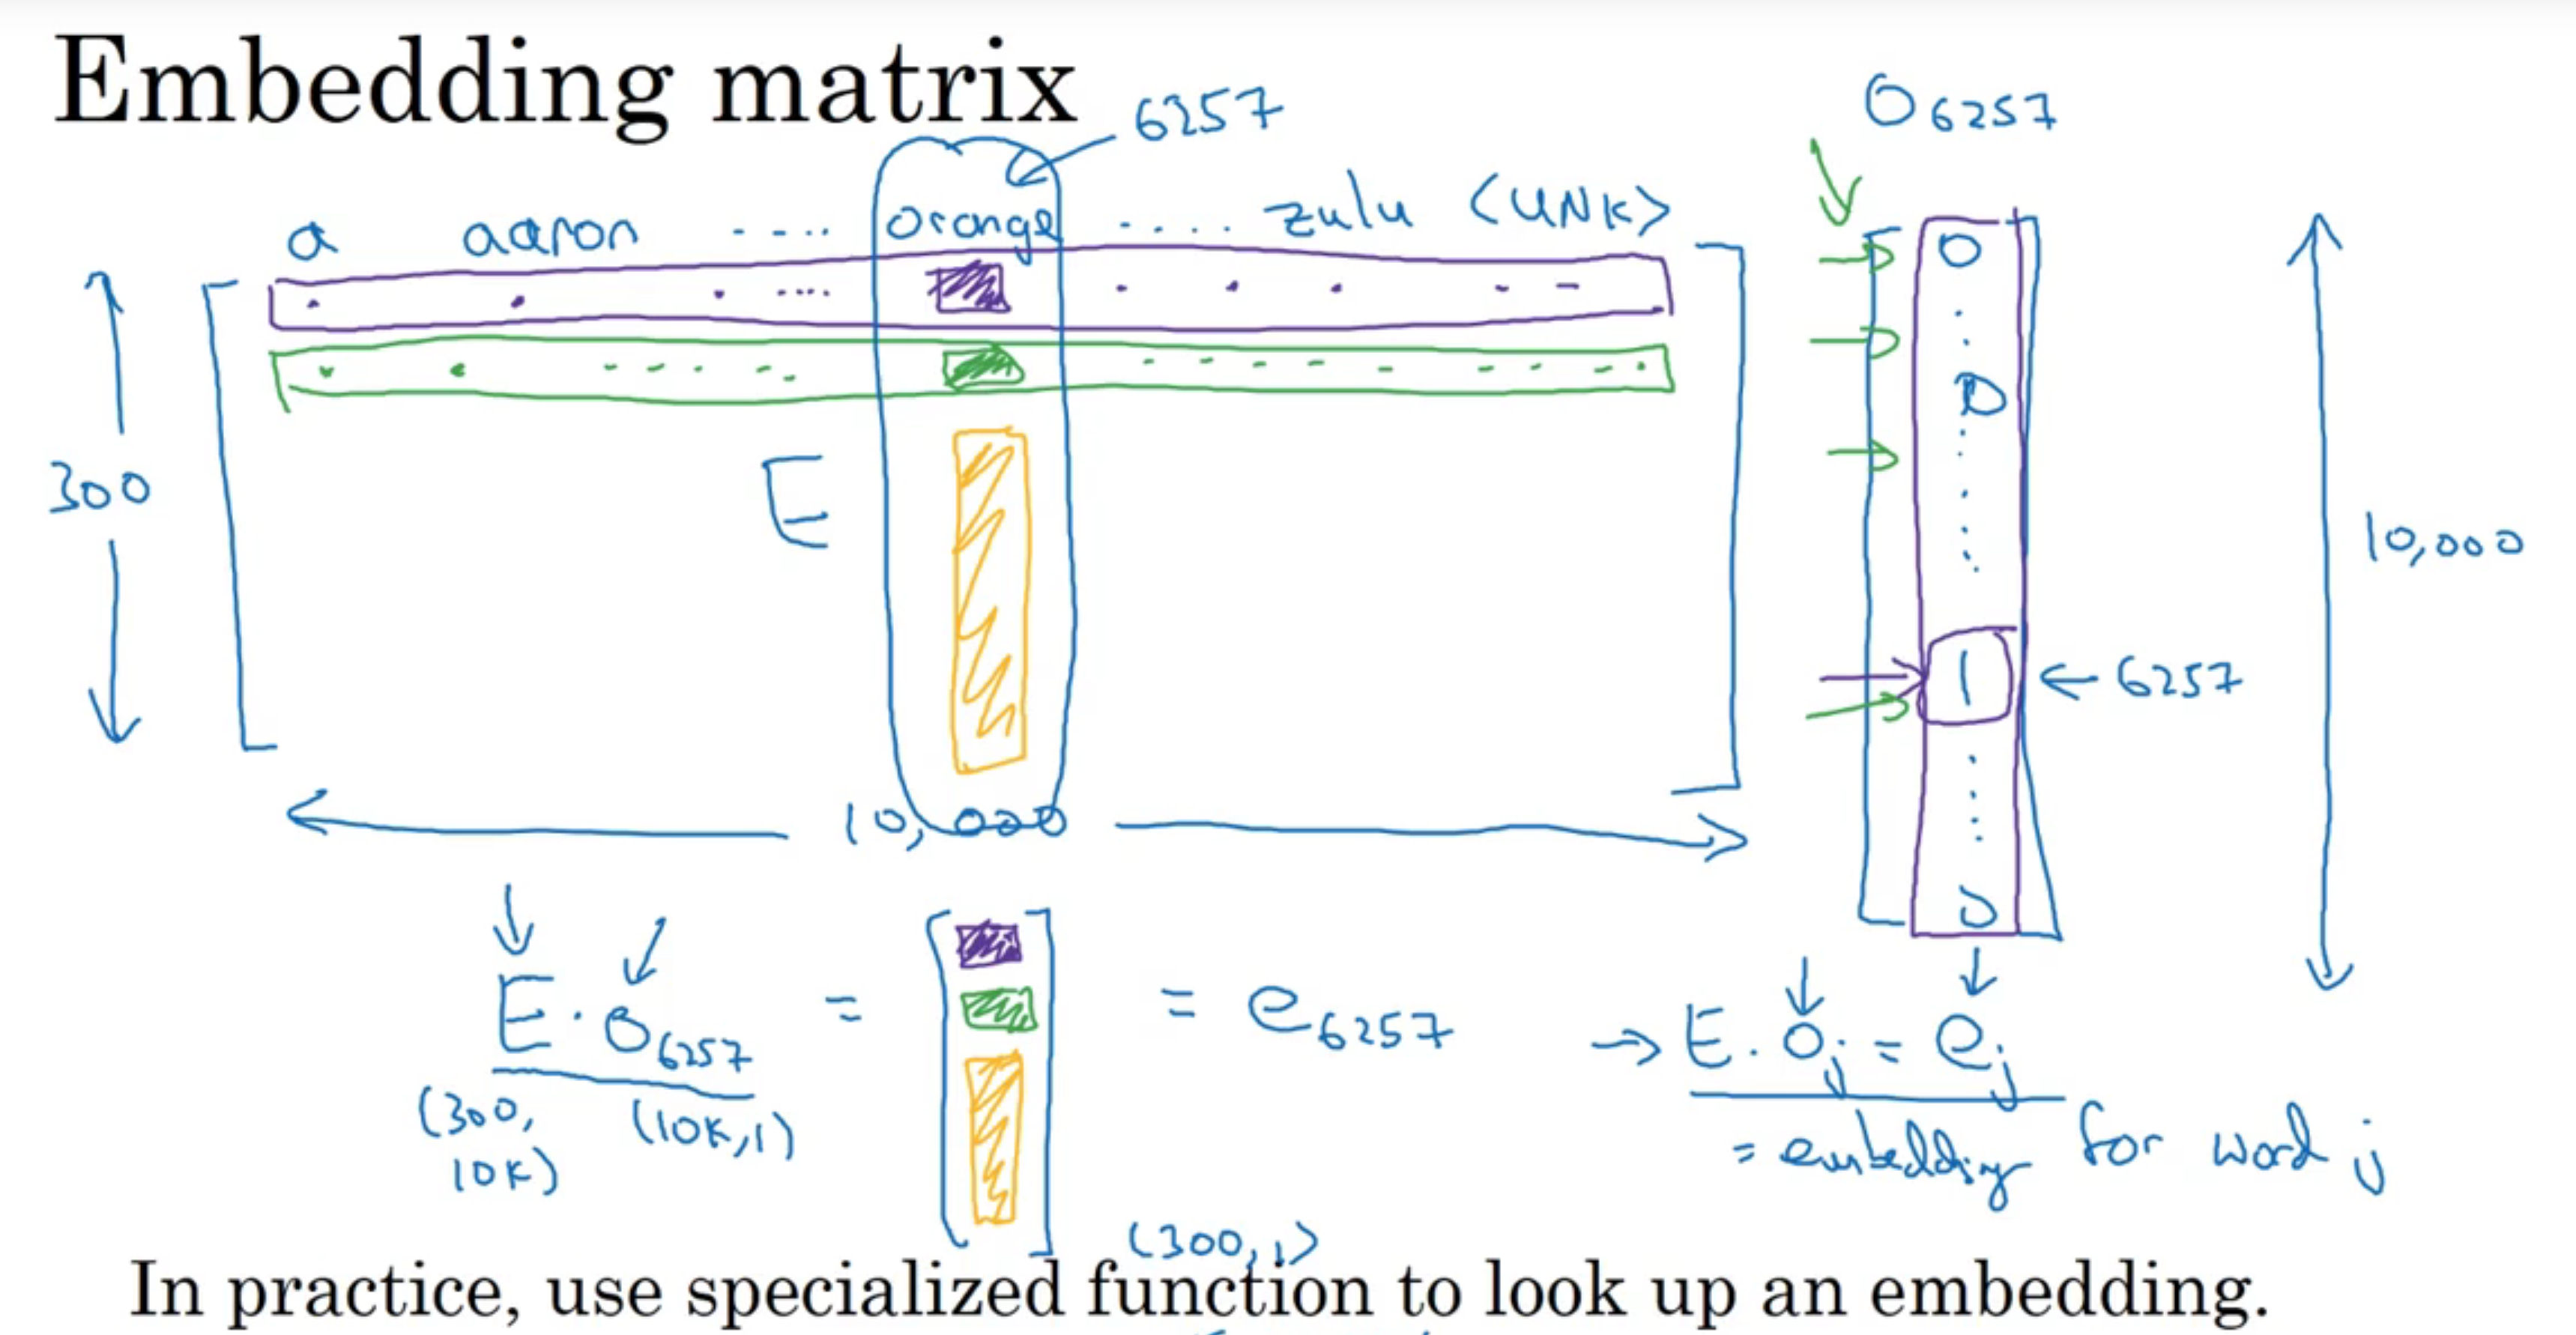 Embedding matrix
6257
O6257
a aaron ---.. orange ..... zulu <UNK>
300
E
10,000
1
← 6257
0
0
0
10,000
E · O6257 = [ ] = e6257
(300, 10K) (10K, 1)
(300, 1)
→ E · Oj = ej
= embedding for word j
In practice, use specialized function to look up an embedding.